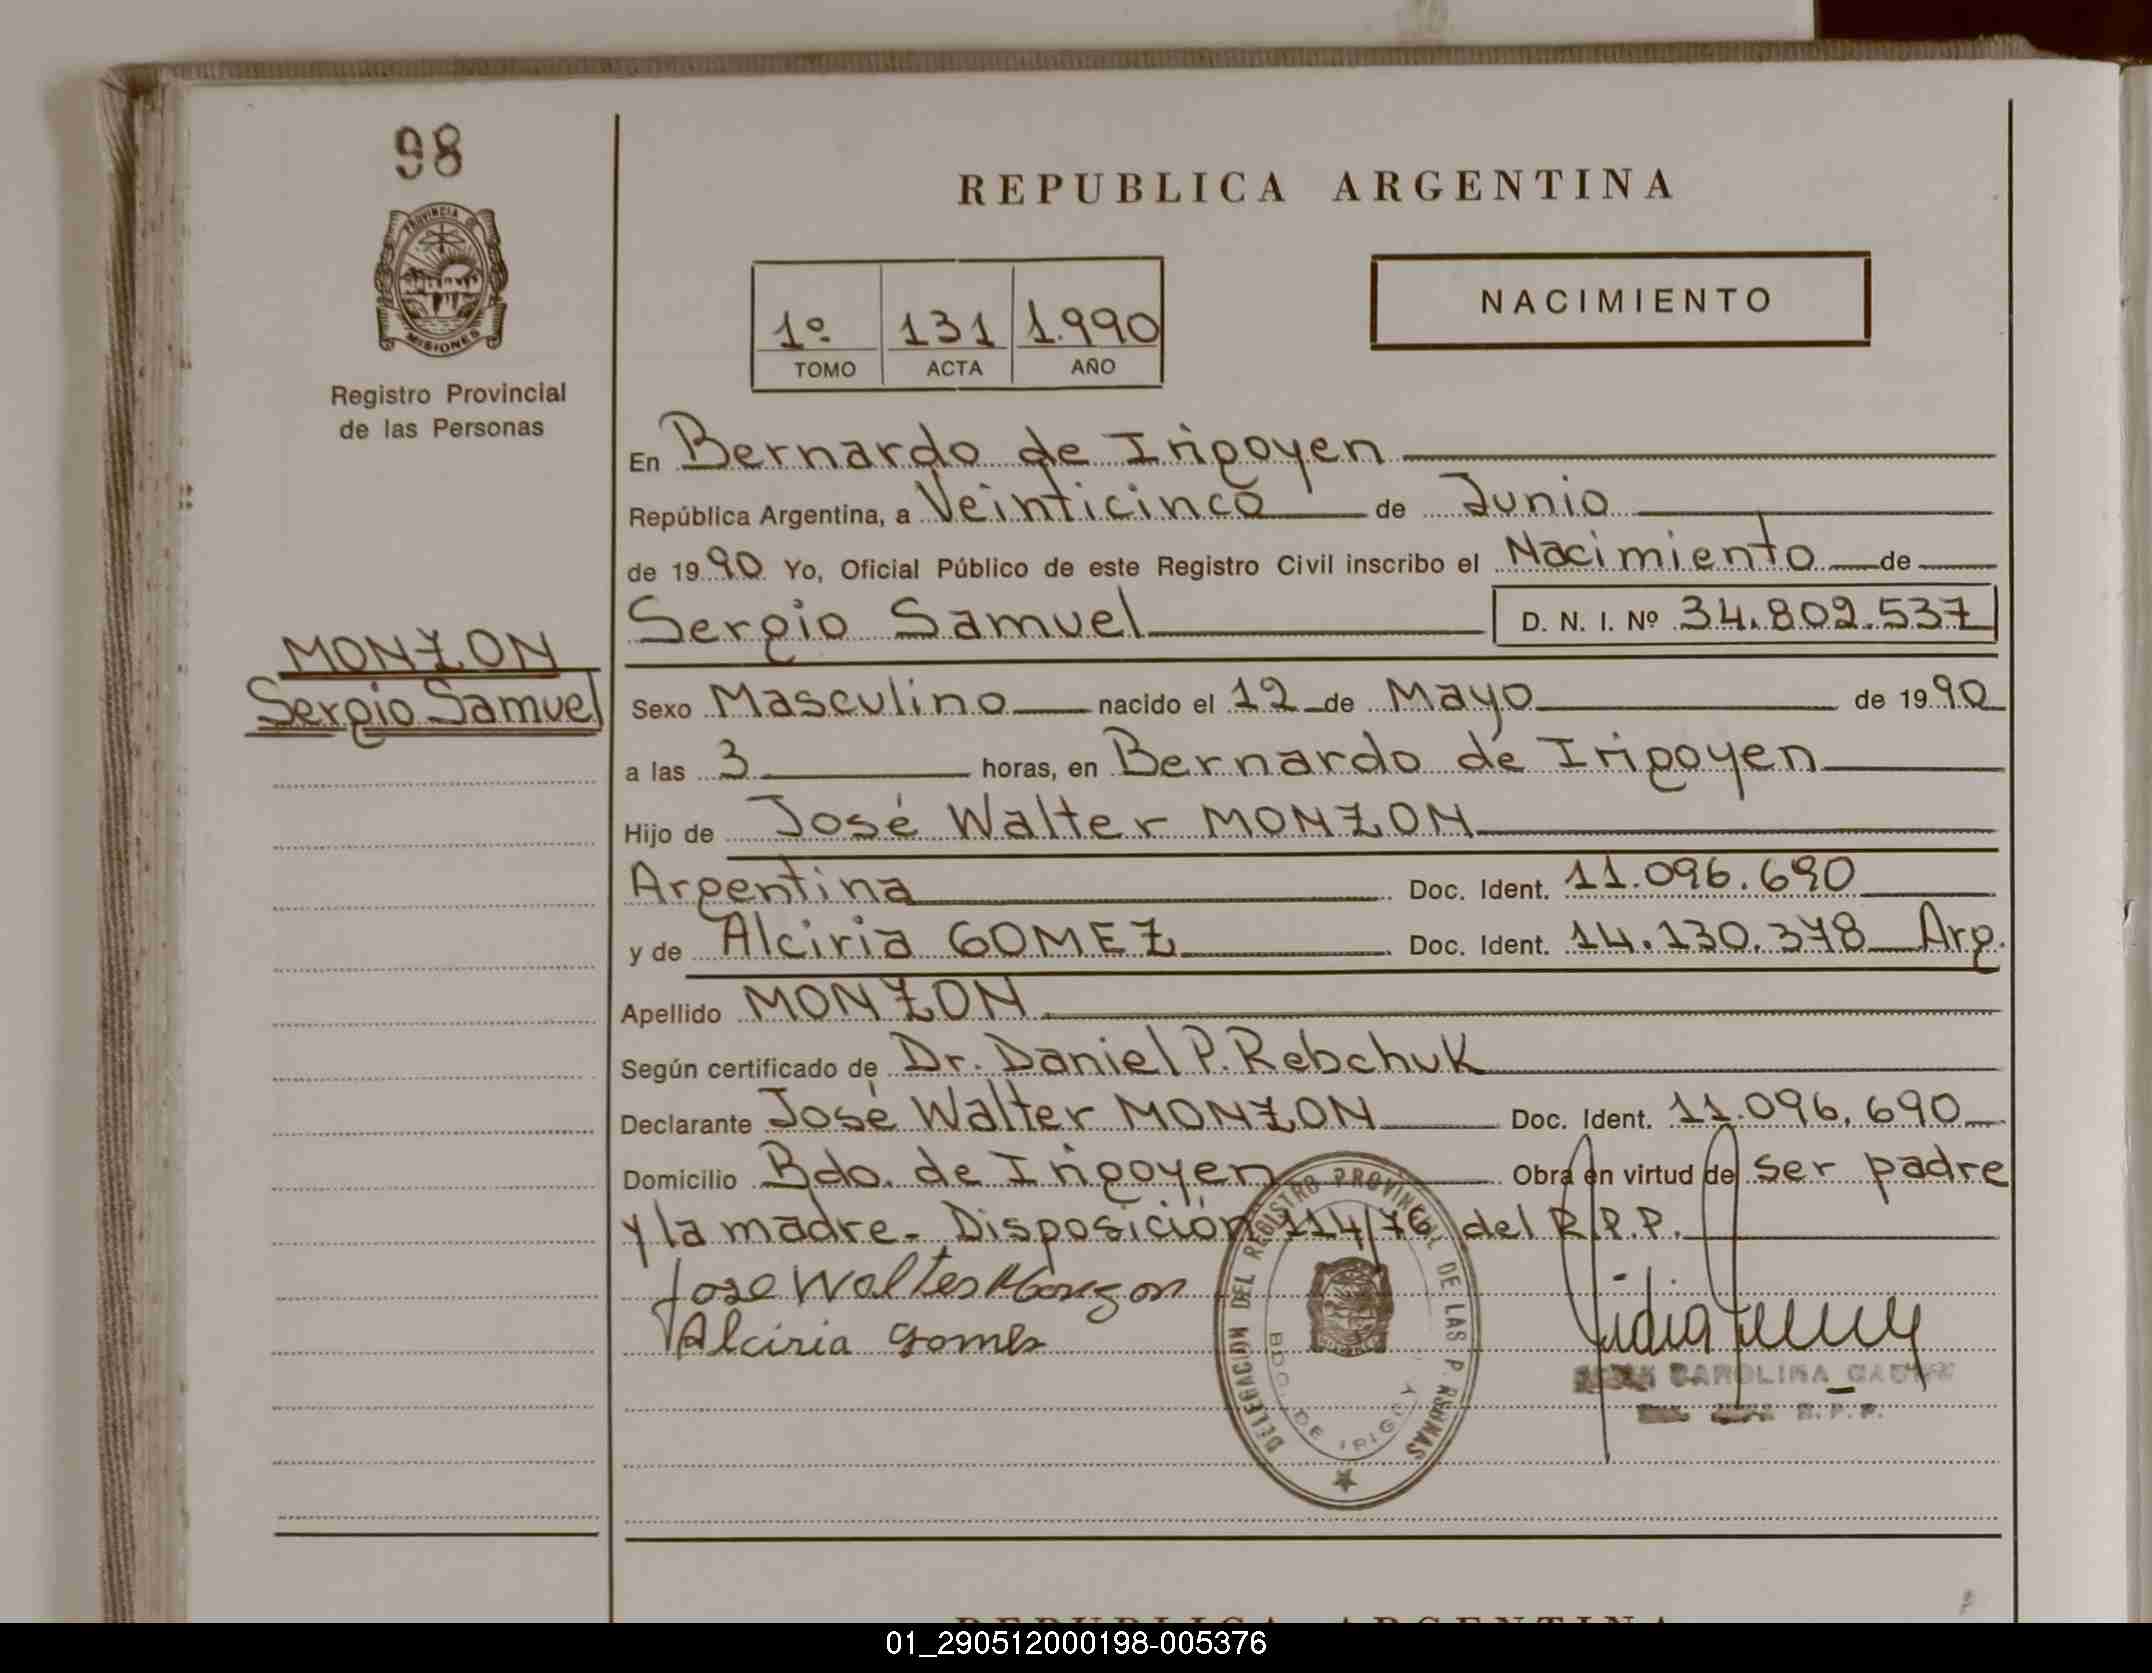 98
PROVINCIA D
MISIONES
Registro Provincial
de las Personas
MONZON
Sergio Samuel
REPUBLICA ARGENTINA
1º 131 1.990
TOMO ACTA AÑO
NACIMIENTO
En Bernardo de Irigoyen
República Argentina, a Veinticinco de Junio
de 1990 Yo, Oficial Público de este Registro Civil inscribo el Nacimiento de
Sergio Samuel D. N. I. Nº 34.802.537
Sexo Masculino nacido el 12 de Mayo de 1990
a las 3 horas, en Bernardo de Irigoyen
Hijo de José Walter MONZON
Argentina Doc. Ident. 11.096.690
y de Alciria GOMEZ Doc. Ident. 14.130.378 Arg.
Apellido MONZON
Según certificado de Dr. Daniel P. Rebchuk
Declarante José Walter MONZON Doc. Ident. 11.096.690
Domicilio Bdo. de Irigoyen Obra en virtud de ser padre
y la madre - Disposición 114/76 del R.P.P.
Jose Walter Monzon
Alciria Gomes
DELEGACION DEL REGISTRO PROVINCIAL DE LAS PERSONAS
BDO. DE IRIGOY
CAROLINA
R.P.P.
REPUBLICA ARGENTINA
01_290512000198-005376